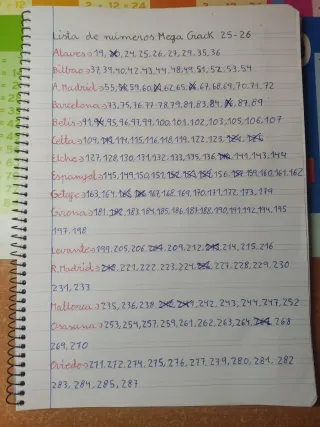 Lista de números Mega Crack 25-26
Alaves→19, 24, 25, 26, 27, 29, 35, 36
Bilbao→37, 39, 40, 42, 43, 44, 48, 49, 51, 52, 53, 54
A. Madrid→55, 59, 60, 62, 65, 67, 68, 69, 70, 71, 72
Barcelona→73, 75, 76, 77, 78, 79, 81, 83, 84, 87, 89
Betis→91, 95, 96, 97, 99, 100, 101, 102, 103, 105, 106, 107
Celta→109, 114, 115, 116, 118, 119, 122, 123,
Elche→127, 128, 130, 131, 132, 133, 135, 136, 141, 143, 144
Espanyol→145, 149, 150, 151, 156, 159, 160, 161, 162
Getafe→163, 164, 167, 168, 169, 170, 171, 172, 173, 179
Girona→181, 183, 184, 185, 186, 187, 188, 190, 191, 192, 194, 195
197, 198
Levante→199, 205, 206, 209, 212, 214, 215, 216
R. Madrid→ 221, 222, 223, 224, 227, 228, 229, 230
231, 233
Mallorca→235, 236, 238, 242, 243, 244, 247, 252
Osasuna→253, 254, 257, 259, 261, 262, 263, 264, 268
269, 270
Oviedo→271, 272, 274, 275, 276, 277, 279, 280, 281, 282
283, 284, 285, 287